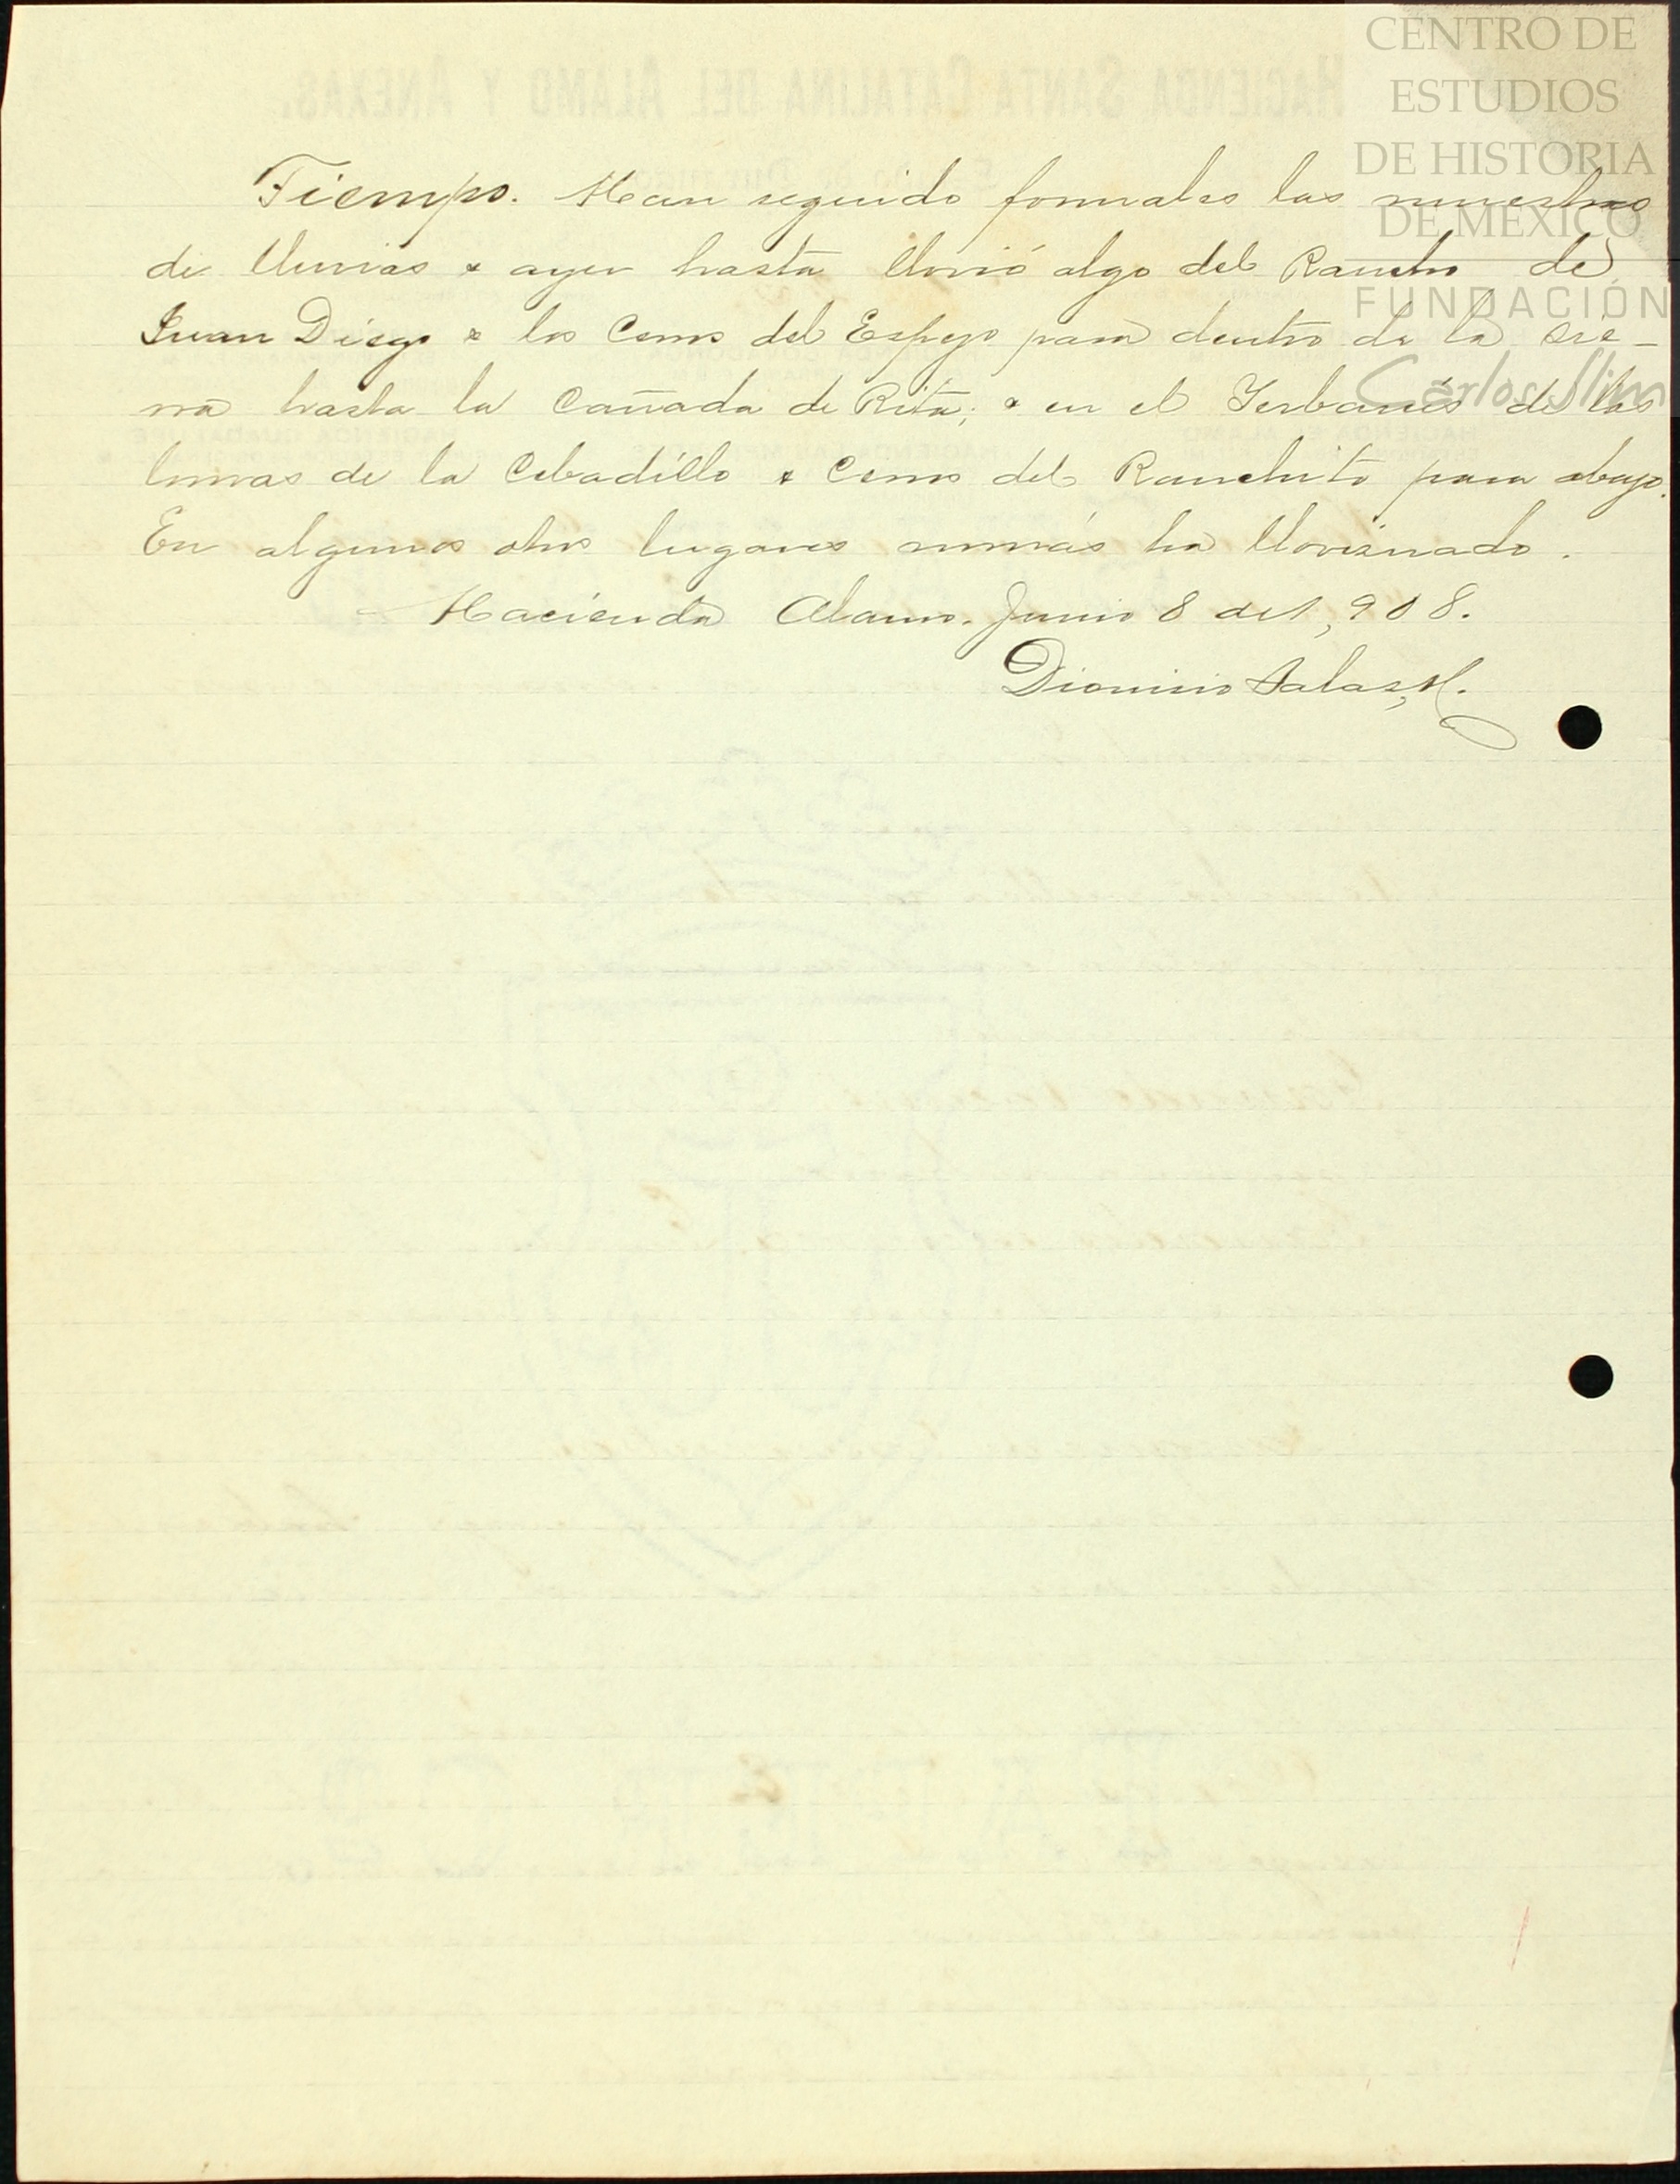 CENTRO DE
ESTUDIOS
DE HISTORIA
DE MÉXICO
FUNDACIÓN
Carlos Slim
HACIENDA SANTA CATALINA DEL ALAMO Y ANEXAS.
Tiempo. Han seguido formales las muestras
de lluvias & ayer hasta llovió algo del Rancho de
Juan Diego & los Cerros del Espejo para dentro de la sie-
rra hasta la Cañada de Rita; & en el Yerbanís de las
lomas de la Cebadilla & Cerro del Ranchito para abajo.
En algunos otros lugares nomás ha lloviznado.
Hacienda Alamo. Junio 8 de 1,908.
Dionisio Salas, H.